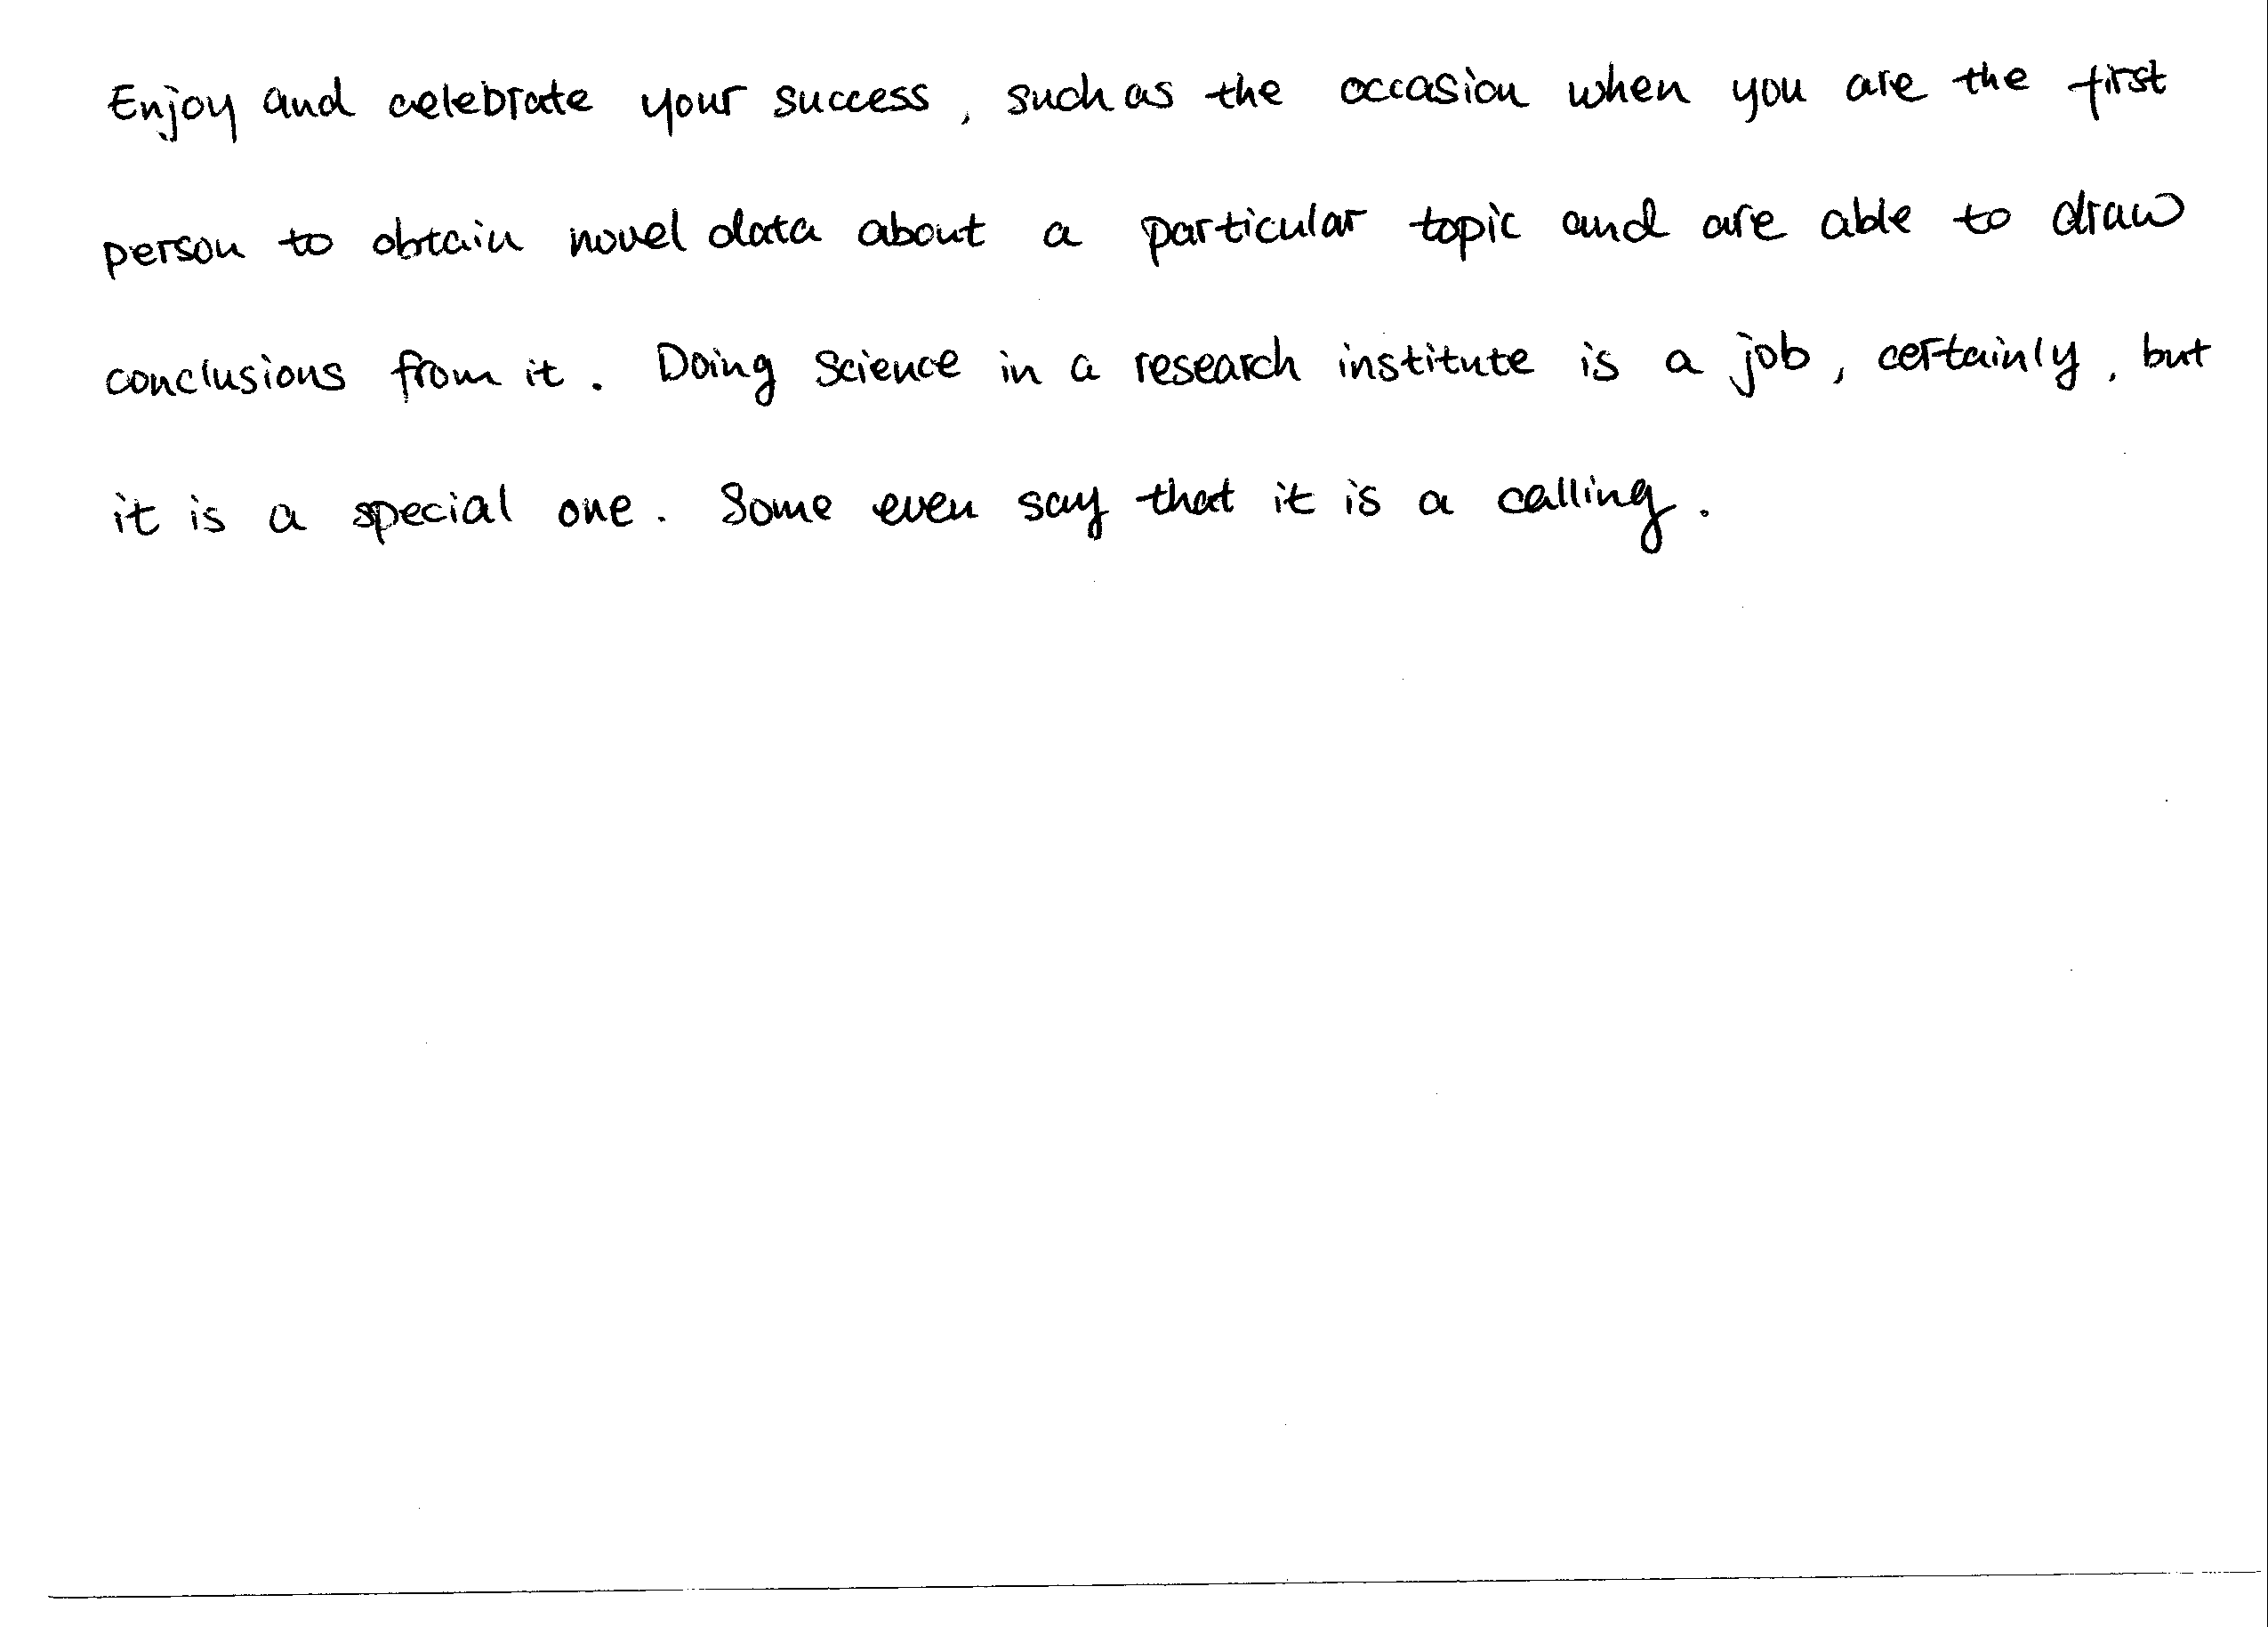 Enjoy and celebrate your success, such as the occasion when you are the first
person to obtain novel data about a particular topic and are able to draw
conclusions from it. Doing Science in a research institute is a job, certainly, but
it is a special one. Some even say that it is a calling.